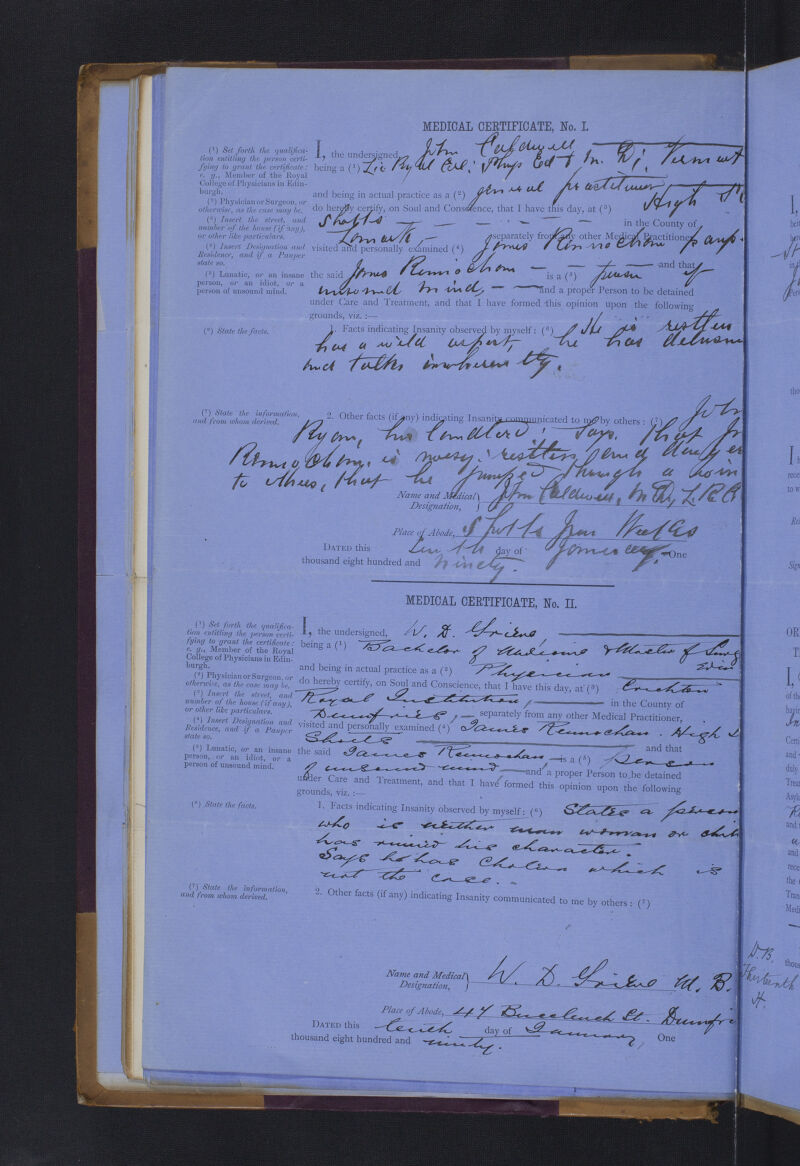 MEDICAL CERTIFICATE, No. I.
(1) Set forth the qualifica-
tion entitling the person certi-
fying to grant the certificate:
e. g., Member of the Royal
College of Physicians in Edin-
burgh.
(2) Physician or Surgeon, or
otherwise, as the case may be.
(3) Insert the street, and
number of the house (if any),
or other like particulars.
(4) Insert Designation and
Residence, and if a Pauper
state so.
(5) Lunatic, or an insane
person, or an idiot, or a
person of unsound mind.
(6) State the facts.
(7) State the information,
and from whom derived.
I, the undersigned, John Caldwell
being a (1) Lic Royal Col: Phys Ed & M. D;
and being in actual practice as a (2) general practitioner
do hereby certify, on Soul and Conscience, that I have this day, at (3) High St
Shotts in the County of
Lanark separately from any other Medical Practitioner,
visited and personally examined (4) James Rennochan paup
the said James Rennochan is a (5) person of and that
unsound mind, and a proper Person to be detained
under Care and Treatment, and that I have formed this opinion upon the following
grounds, viz. :—
1. Facts indicating Insanity observed by myself: (6) He is restless
has a wild aspect, he has delusions
and talks incoherently.
2. Other facts (if any) indicating Insanity communicated to me by others: (7) John
Ryan, his landlord: Says that
Rennochan is noisy: restless and danger
to others, that he jumped through a
Name and Medical Designation, John Caldwell, M.D., L.R.C
Place of Abode, Shotts Iron Works
DATED this tenth day of January. One
thousand eight hundred and ninety.
MEDICAL CERTIFICATE, No. II.
(1) Set forth the qualifica-
tion entitling the person certi-
fying to grant the certificate:
e. g., Member of the Royal
College of Physicians in Edin-
burgh.
(2) Physician or Surgeon, or
otherwise, as the case may be.
(3) Insert the street, and
number of the house (if any),
or other like particulars.
(4) Insert Designation and
Residence, and if a Pauper
state so.
(5) Lunatic, or an insane
person, or an idiot, or a
person of unsound mind.
(6) State the facts.
(7) State the information,
and from whom derived.
I, the undersigned, W. D. Grieve
being a (1) Bachelor of Medicine & Master of Surg
Edin
and being in actual practice as a (2) Physician
do hereby certify, on Soul and Conscience, that I have this day, at (3) Crichton
Royal Institution, in the County of
Dumfries, separately from any other Medical Practitioner,
visited and personally examined (4) James Rennochan. High
Shotts and that
the said James Rennochan is a (5) person
of unsound mind and a proper Person to be detained
under Care and Treatment, and that I have formed this opinion upon the following
grounds, viz. :—
1. Facts indicating Insanity observed by myself: (6) States a person
who is neither man woman or child
has ruined his character.
Says he has Cholera which is
not the case.
2. Other facts (if any) indicating Insanity communicated to me by others: (7)
Name and Medical Designation, W. D. Grieve M. B.
Place of Abode, 47 Buccleuch St. Dumfri
DATED this tenth day of January, One
thousand eight hundred and ninety.